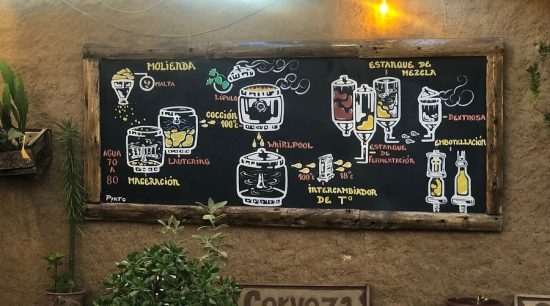 MOLIENDA
MALTA
LÚPULO
COCCIÓN
100°C
ESTANQUE DE
MEZCLA
DEXTROSA
EMBOTELLACIÓN
ESTANQUE
DE
FERMENTACIÓN
WHIRLPOOL
LAUTERING
AGUA
70
A
80
MACERACIÓN
100°C
18°C
INTERCAMBIADOR
DE T°
Cerveza